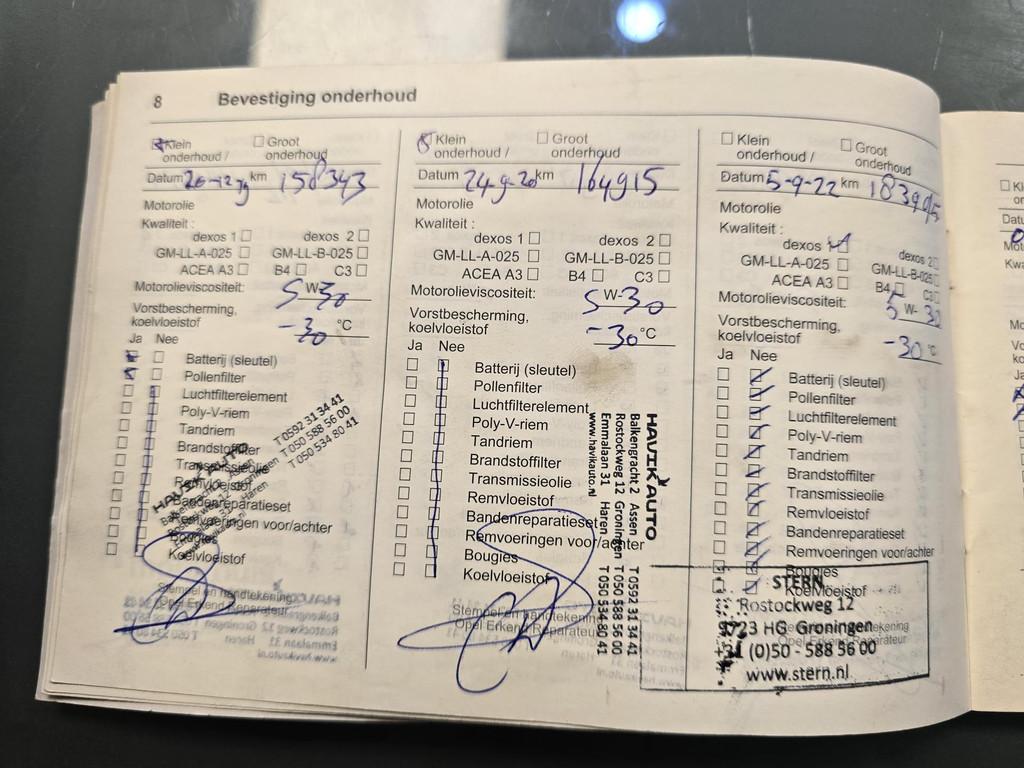 8 Bevestiging onderhoud
Klein onderhoud /
Groot onderhoud
Datum 20-12-19 km 158343
Motorolie
Kwaliteit :
dexos 1 dexos 2
GM-LL-A-025 GM-LL-B-025
ACEA A3 B4 C3
Motorolieviscositeit: 5 W-30
Vorstbescherming,
koelvloeistof -30 °C
Ja Nee
Batterij (sleutel)
Pollenfilter
Luchtfilterelement
Poly-V-riem
Tandriem
Brandstoffilter
Transmissieolie
Remvloeistof
Bandenreparatieset
Remvoeringen voor/achter
Bougies
Koelvloeistof
Stempel en handtekening
Opel Erkend Reparateur
T 0592 31 34 41
T 050 588 56 00
T 050 534 80 41
Klein onderhoud /
Groot onderhoud
Datum 24-9-20 km 164915
Motorolie
Kwaliteit :
dexos 1 dexos 2
GM-LL-A-025 GM-LL-B-025
ACEA A3 B4 C3
Motorolieviscositeit: 5 W-30
Vorstbescherming,
koelvloeistof -30 °C
Ja Nee
Batterij (sleutel)
Pollenfilter
Luchtfilterelement
Poly-V-riem
Tandriem
Brandstoffilter
Transmissieolie
Remvloeistof
Bandenreparatieset
Remvoeringen voor/achter
Bougies
Koelvloeistof
Stempel en handtekening
Opel Erkend Reparateur
HAVIK AUTO
Balkengracht 2 Assen T 0592 31 34 41
Rostockweg 12 Groningen T 050 588 56 00
Emmalaan 31 Haren T 050 534 80 41
www.havikauto.nl
Klein onderhoud /
Groot onderhoud
Datum 5-9-22 km 183905
Motorolie
Kwaliteit :
dexos 1 dexos 2
GM-LL-A-025 GM-LL-B-025
ACEA A3 B4 C3
Motorolieviscositeit: 5 W-30
Vorstbescherming,
koelvloeistof -30 °C
Ja Nee
Batterij (sleutel)
Pollenfilter
Luchtfilterelement
Poly-V-riem
Tandriem
Brandstoffilter
Transmissieolie
Remvloeistof
Bandenreparatieset
Remvoeringen voor/achter
Bougies
Koelvloeistof
Opel Erkend Reparateur
STERN
Rostockweg 12
9723 HG Groningen
+31 (0)50 - 588 56 00
www.stern.nl